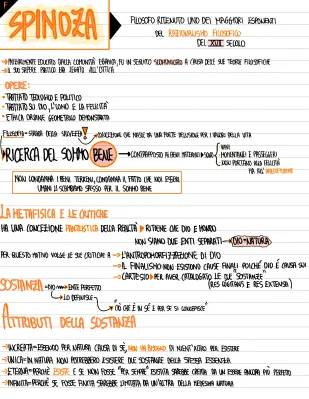 SPINOZA
FILOSOFO RITENUTO UNO DEI MAGGIORI ESPONENTI
DEL RAZIONALISMO FILOSOFICO
DEL XVII SECOLO
→INIZIALMENTE EDUCATO DALLA COMUNITÀ EBRAICA, FU IN SEGUITO SCOMUNICATO A CAUSA DELLE SUE TEORIE FILOSOFICHE
→IL SUO SAPERE PRATICO ERA LEGATO ALL'OTTICA
OPERE:
•TRATTATO TEOLOGICO E POLITICO
•TRATTATO SU DIO, L'UOMO E LA FELICITÀ
•ETHICA ORDINE GEOMETRICO DEMONSTRATA
FILOSOFIA→STRADA DELLA SALVEZZA →CONCEZIONE CHE NASCE DA UNA FORTE DELUSIONE PER I VALORI DELLA VITA
→RICERCA DEL SOMMO BENE →CONTRAPPOSTO AI BENI MATERIALI→SONO
VANI
MOMENTANEI E PASSEGGERI
NON PORTANO ALLA FELICITÀ
NON CONDANNA I BENI TERRENI, CONDANNA IL FATTO CHE NOI ESSERI
UMANI LI SCAMBIAMO SPESSO PER IL SOMMO BENE
LA METAFISICA E LE CRITICHE
HA UNA CONCEZIONE PANTEISTICA DELLA REALTÀ → RITIENE CHE DIO E MONDO
NON SIANO DUE ENTI SEPARATI →DIO=NATURA
PER QUESTO MOTIVO VOLGE LE SUE CRITICHE A →L'ANTROPOMORFIZZAZIONE DI DIO
→IL FINALISMO: NON ESISTONO CAUSE FINALI POICHÉ DIO È CAUSA SUI
→CARTESIO→PER AVER CATALOGATO LE DUE "SOSTANZE"
(RES COGITANS E RES EXTENSA)
SOSTANZA→DIO →ENTE PERFETTO
LO DEFINISCE
"CIÒ CHE È IN SÉ E PER SÉ SI CONCEPISCE"
ATTRIBUTI DELLA SOSTANZA
→INCREATA=ESSENDO PER NATURA CAUSA DI SÉ, NON HA BISOGNO DI NIENT'ALTRO PER ESISTERE
→UNICA=IN NATURA NON POTREBBERO ESISTERE DUE SOSTANZE DELLA STESSA ESSENZA
→ETERNA=PERCHÉ ESISTE E SE NON FOSSE "PER SEMPRE" ESISTITA SAREBBE CREATA DA UN ESSERE ANCORA PIÙ PERFETTO
→INFINITA=PERCHÉ SE FOSSE FINITA SAREBBE LIMITATA DA UN'ALTRA DELLA MEDESIMA NATURA